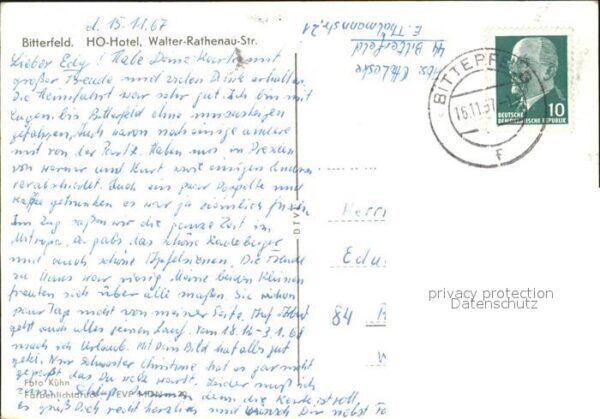 d. 15.11.67
Bitterfeld. HO-Hotel, Walter-Rathenau-Str.
Lieber Edy! Habe Deine Karte mit
großer Freude und vielen Dank erhalten.
Die Heimfahrt war sehr gut. Ich bin mit
bis Bitterfeld ohne umzusteigen
gefahren, auch waren noch einige andere
mit von der Partie. Haben uns in Dresden
von Werner und Kurt und einigen anderen
verabschiedet. Auch ein paar Doppelte und
Kaffee getrunken es war ja ziemlich frisch.
Im Zug saßen wir die ganze Zeit im
Mitropa, da gabs das schöne Radeberger
und auch schöne Apfelsinen. Die Freude
zu Haus war riesig. Meine beiden Kleinen
freuten sich über alle maßen. Sie wichen
paar Tage nicht von meiner Seite. Auf Arbeit
geht auch alles seinen Lauf. Vom 18.12-3.1.68
mach ich Urlaub. Mit dem Bild hat alles gut
gekl. Nur Schwester Christine hat es gar nicht
gepaßt das Du nicht warst. Leider muß ich
zum Schluß kommen, denn die Karte ist voll,
es grüßt Dich recht herzlich und wünsch Dir nebst
Foto Kühn
EVP MDN
DTV
Abs.
44 Bitterfeld
E. Thälmannstr. 21
BITTERFELD
16.11.67
f
10
DEUTSCHE
DEMOKRATISCHE REPUBLIK
Herrn
Edu
84
privacy protection
Datenschutz